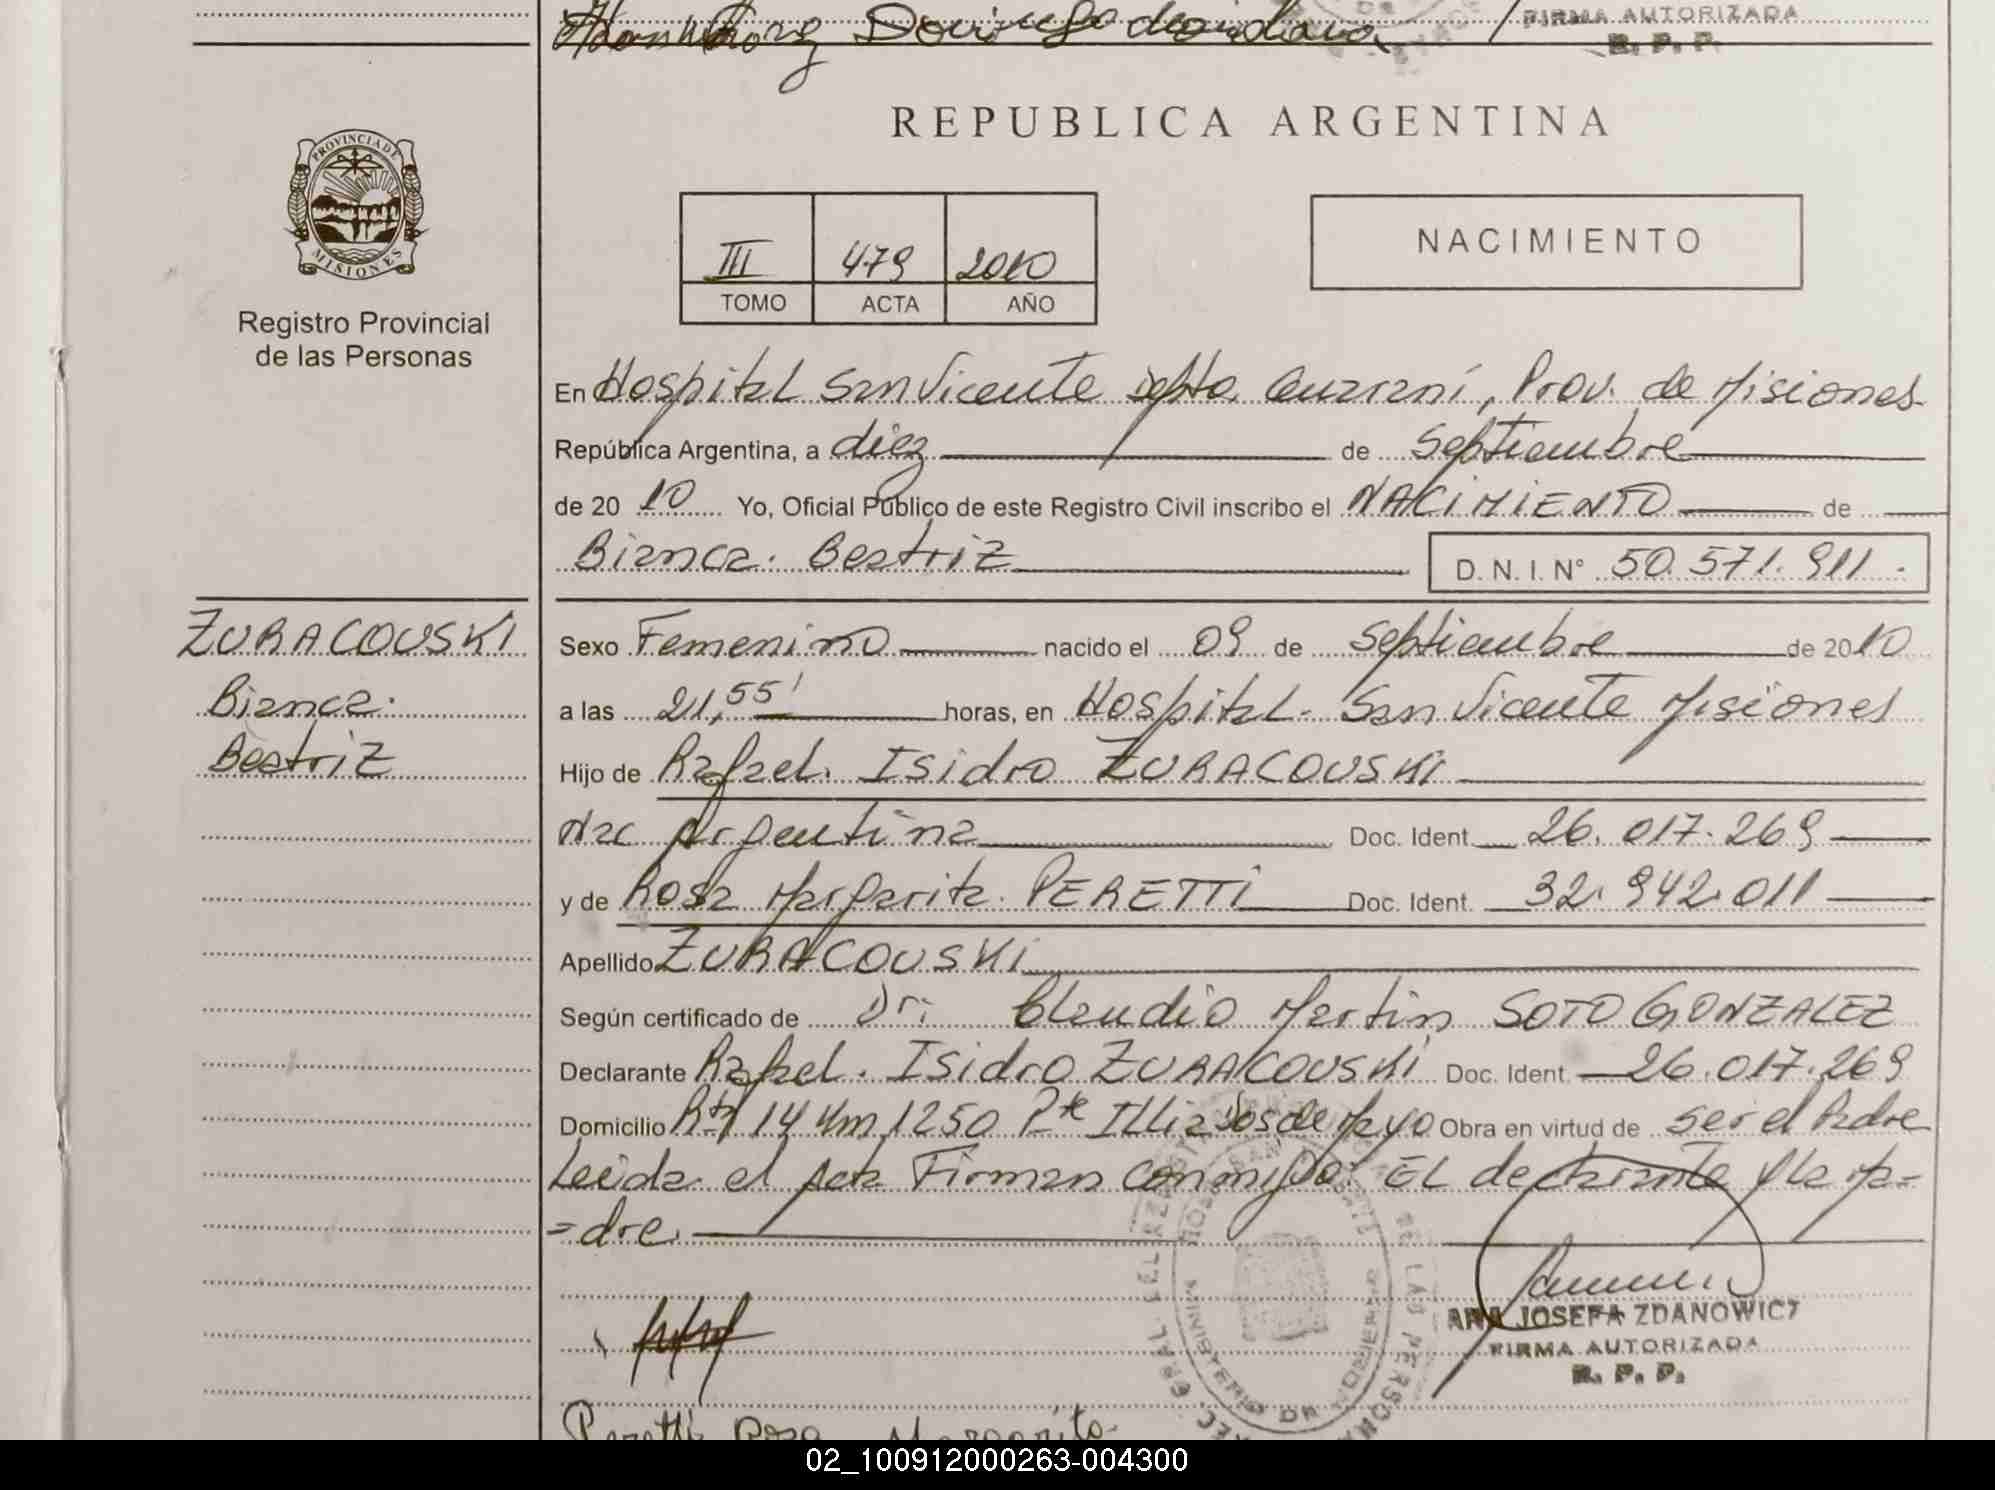 Domingo
FIRMA AUTORIZADA
R. P. P.
REPUBLICA ARGENTINA
PROVINCIA DE
MISIONES
Registro Provincial
de las Personas
III 479 2010
TOMO ACTA AÑO
NACIMIENTO
En Hospital San Vicente Dpto. Guaraní, Prov. de Misiones
República Argentina, a diez de Septiembre
de 2010 Yo, Oficial Público de este Registro Civil inscribo el NACIMIENTO de
Bianca. Beatriz D. N. I. N° 50.571.911.
ZURACOUSKI
Bianca.
Beatriz
Sexo Femenino nacido el 09 de Septiembre de 2010
a las 21,55' horas, en Hospital. San Vicente Misiones
Hijo de Rafael. Isidro ZURACOUSKI
Nac Argentina Doc. Ident. 26.017.269
y de Rosa Margarita. PERETTI Doc. Ident. 32.942.011
Apellido ZURACOUSKI
Según certificado de Dr. Claudio Martin SOTO GONZALEZ
Declarante Rafael. Isidro ZURACOUSKI Doc. Ident. 26.017.269
Domicilio Rta 14 Km 1250 Pje Illia Dos de Mayo Obra en virtud de ser el Padre
Leida el Acta Firman conmigo: EL declarante y la ma=
=dre.
ANA JOSEFA ZDANOWICZ
FIRMA AUTORIZADA
R. P. P.
MINISTERIO DE GOBIERNO
Peretti Rosa Margarita.
02_100912000263-004300